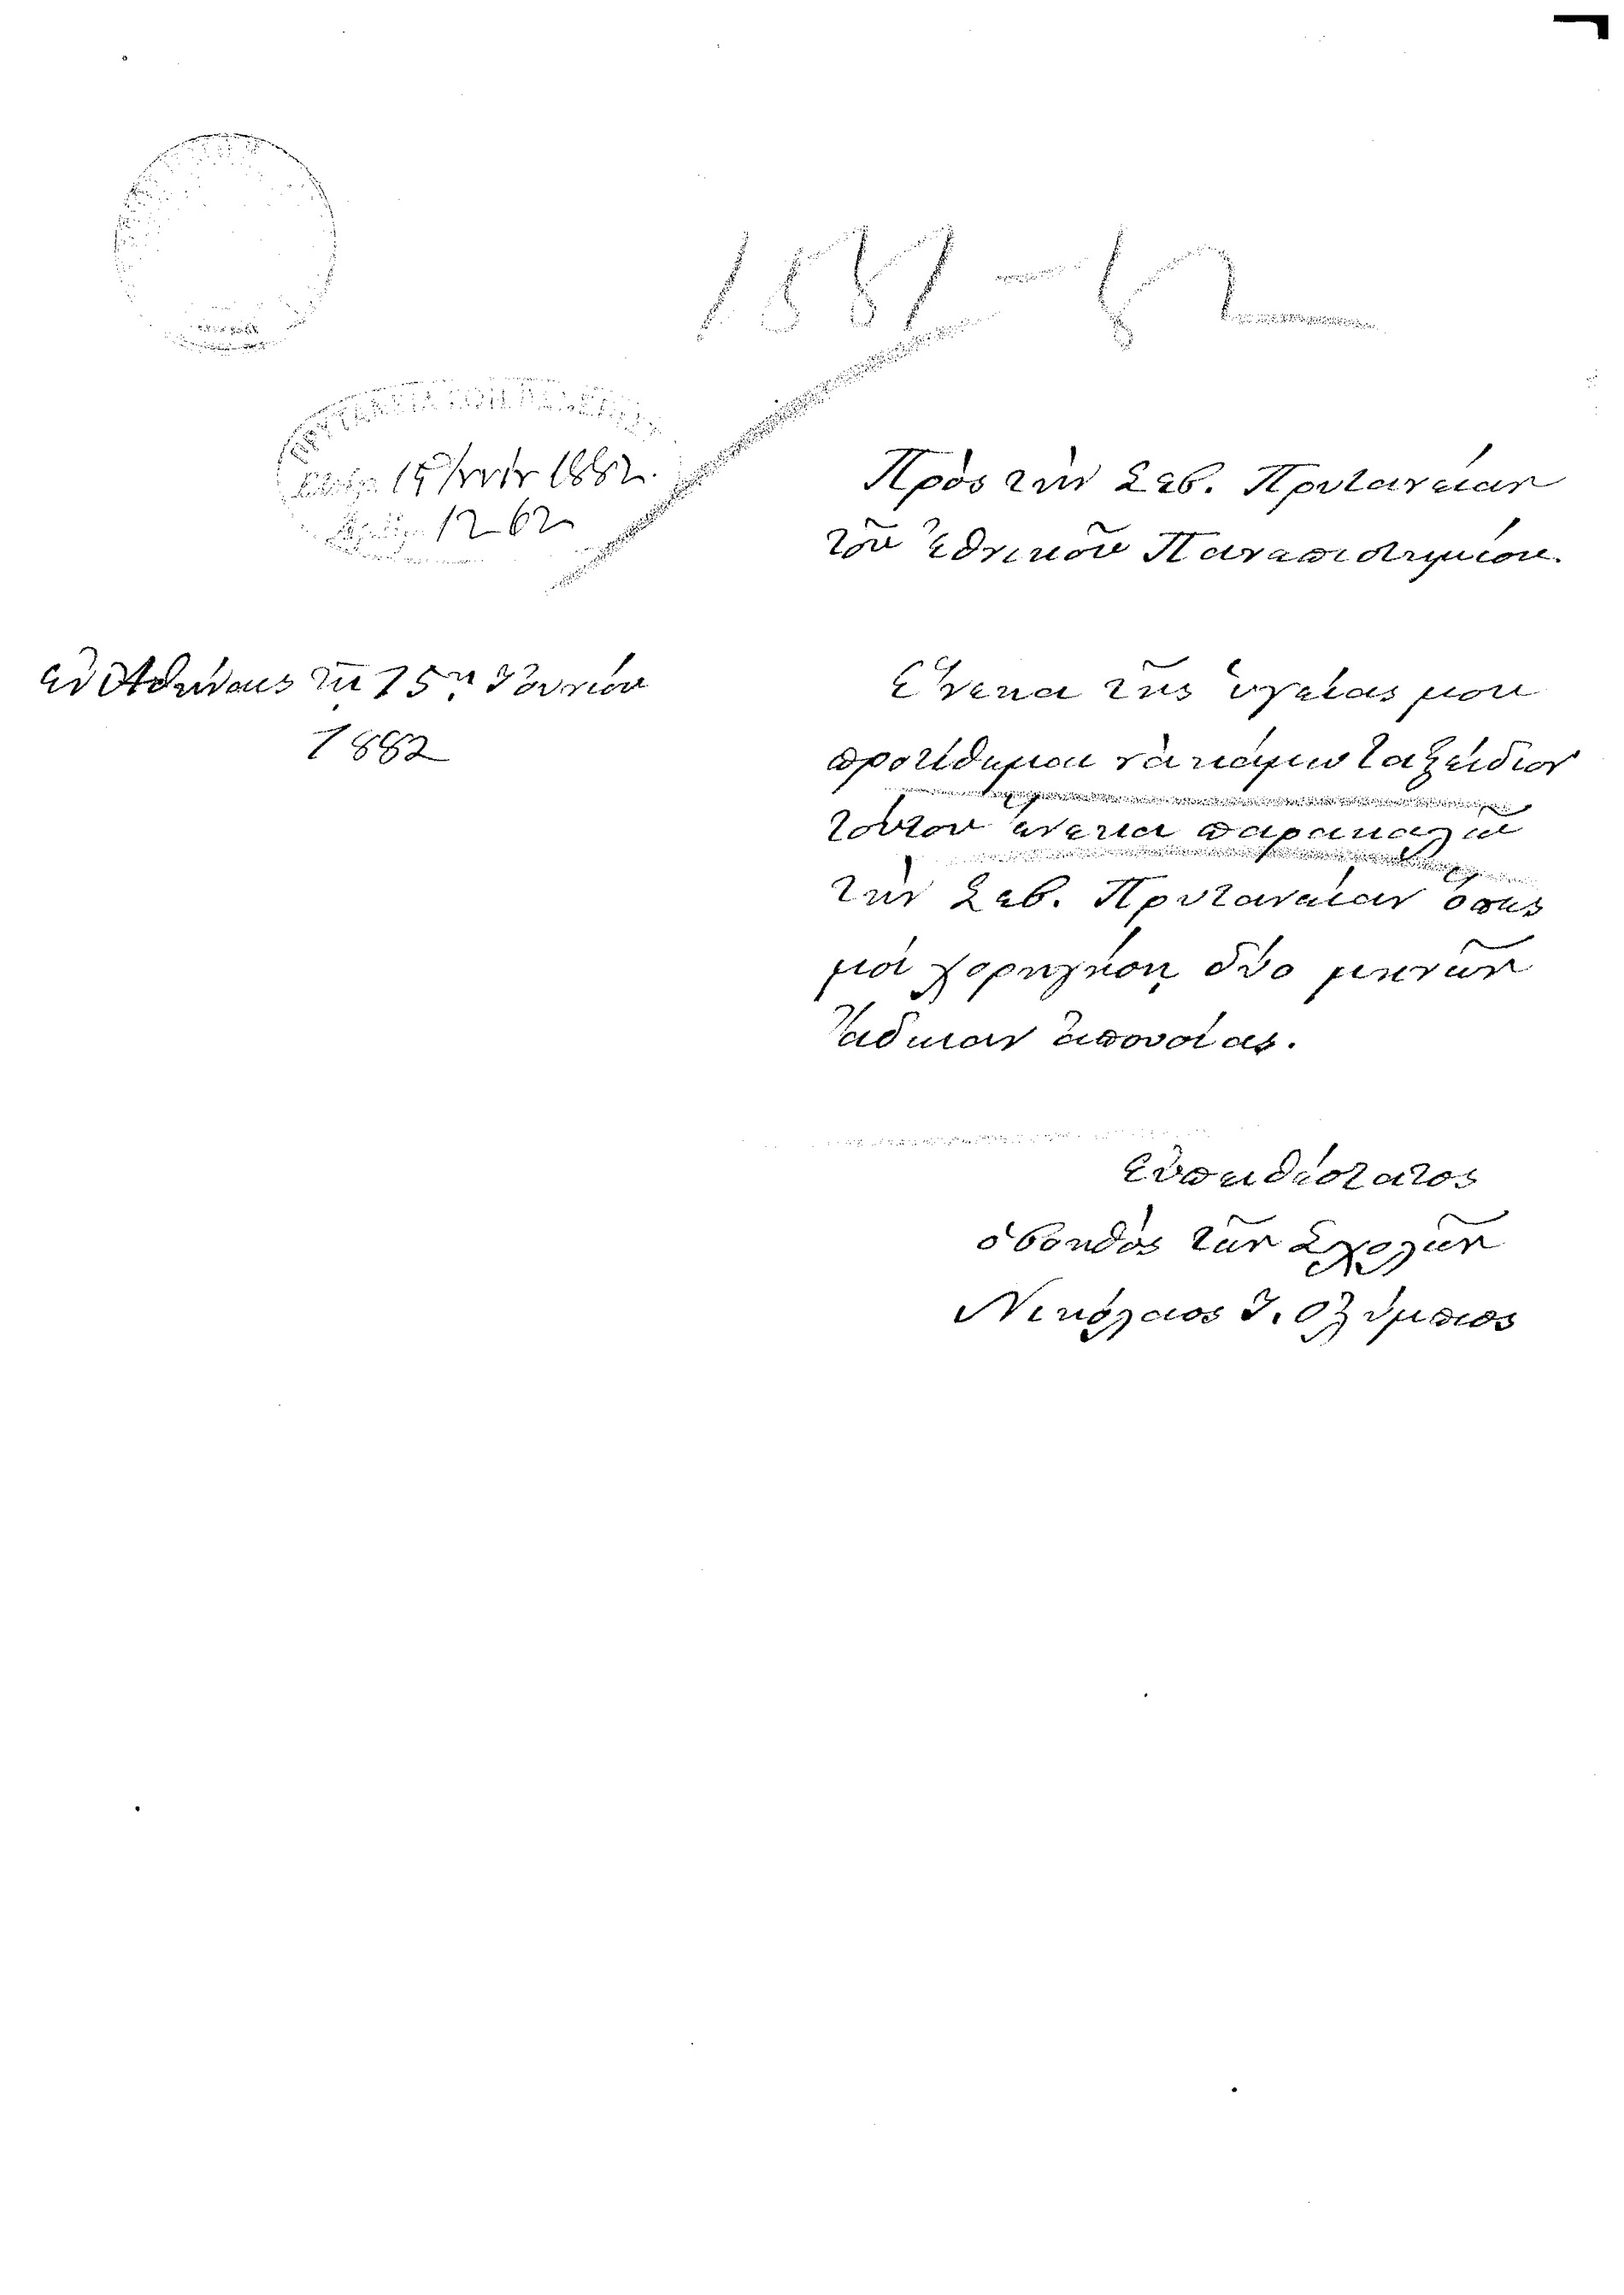 1881-82
ΠΡΥΤΑΝΕΙΑ ΤΟΥ ΠΑΝΕΠΙΣΤ
15 Ἰουνίου 1882.
Ἀριθ. 1262
Πρὸς τὴν Σεβ. Πρυτανείαν
τοῦ Ἐθνικοῦ Πανεπιστημίου.
ἐν Ἀθήναις τῇ 15ῃ Ἰουνίου
1882
Ἕνεκα τῆς ὑγείας μου
προτίθημαι νὰ κάμω ταξείδιον
τούτου ἕνεκα παρακαλῶ
τὴν Σεβ. Πρυτανείαν ὅπως
μοί χορηγήσῃ δύο μηνῶν
ἄδειαν ἀπουσίας.
Εὐπειθέστατος
ὁ βοηθὸς τῶν Σχολῶν
Νικόλαος Ἰ. Ολύμπιος